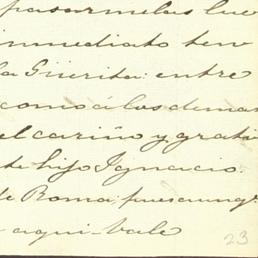 pasarmelas lue
inmediato ten
la Güerita: entre
como á los demas
el cariño y grati
te hijo Ignacio.
de Roma, pues aunq.
aqui vale
23